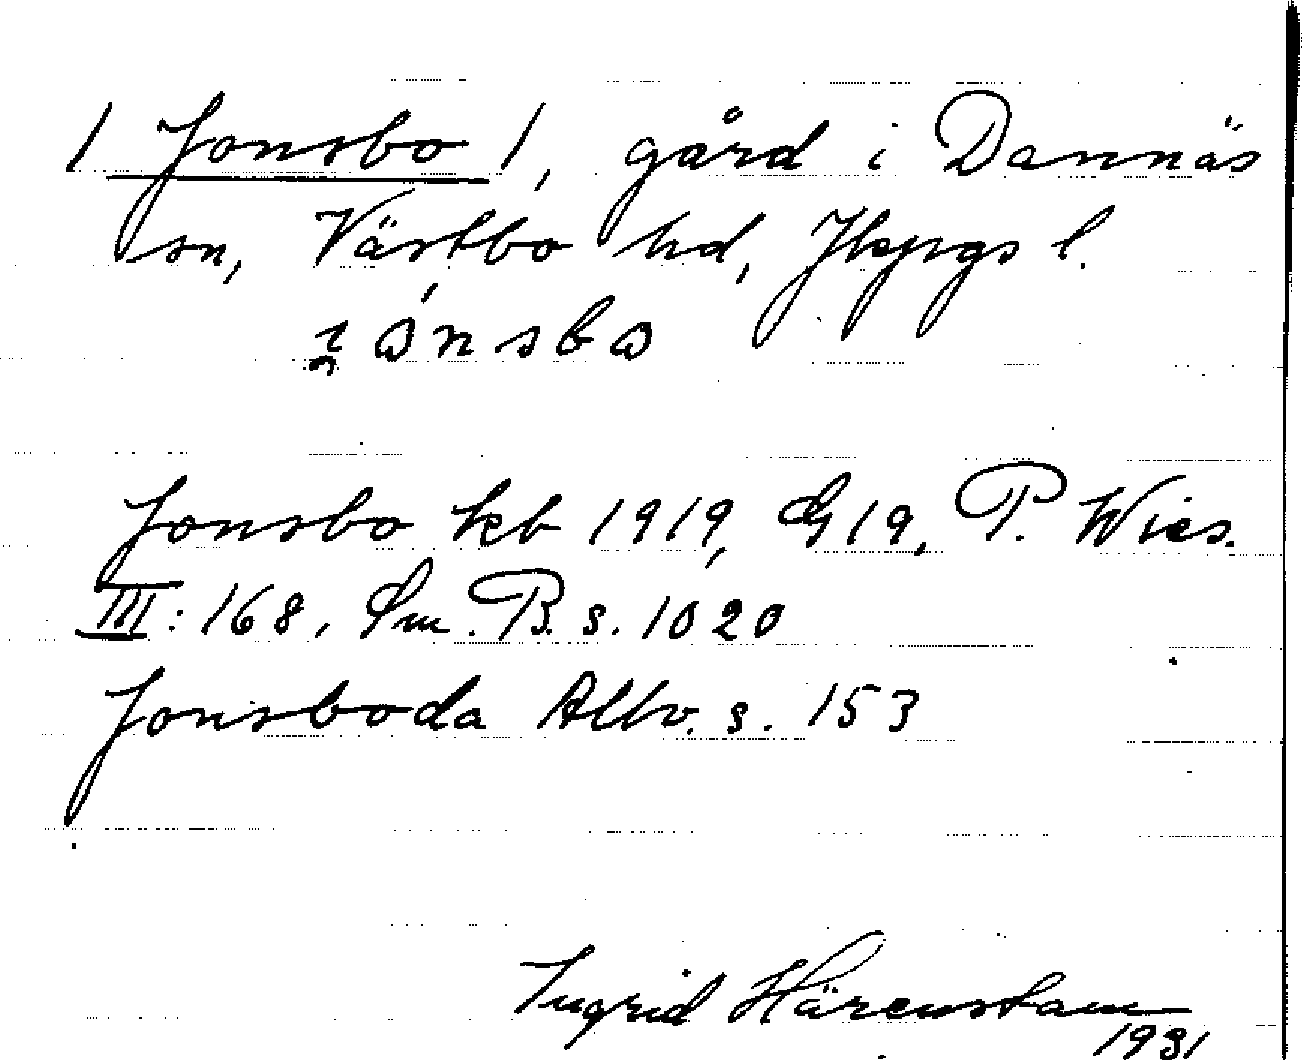 / Jonsbo /, gård i Dannäs
sn, Västbo hd, Jkpgs l.
Jonsbo kb 1919, G19, P. Wies.
III: 168, Sm. B. s. 1020
Jonsboda Allv. s. 153
Ingrid Härenstam
1931